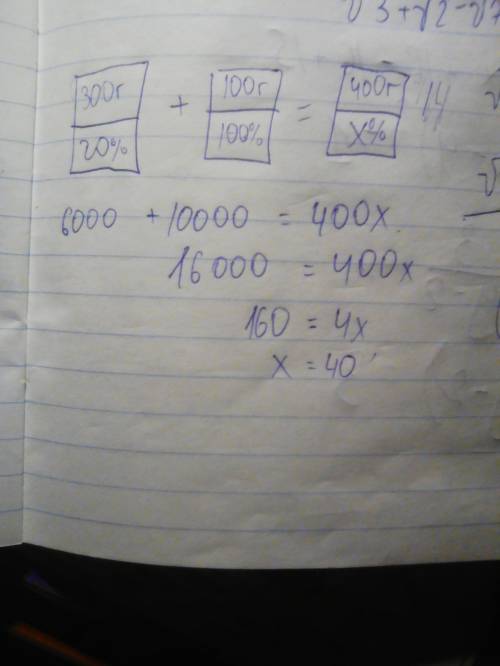 √3+√2-√
300г + 100г = 400г
20% 100% x%
6000 + 10000 = 400x
16000 = 400x
160 = 4x
x = 40